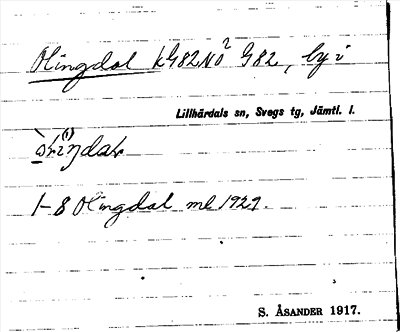 Olingdal kG82NO² G82, by i
Lillhärdals sn, Svegs tg, Jämtl. l.
1-8 Olingdal ml 1929.
S. ÅSANDER 1917.